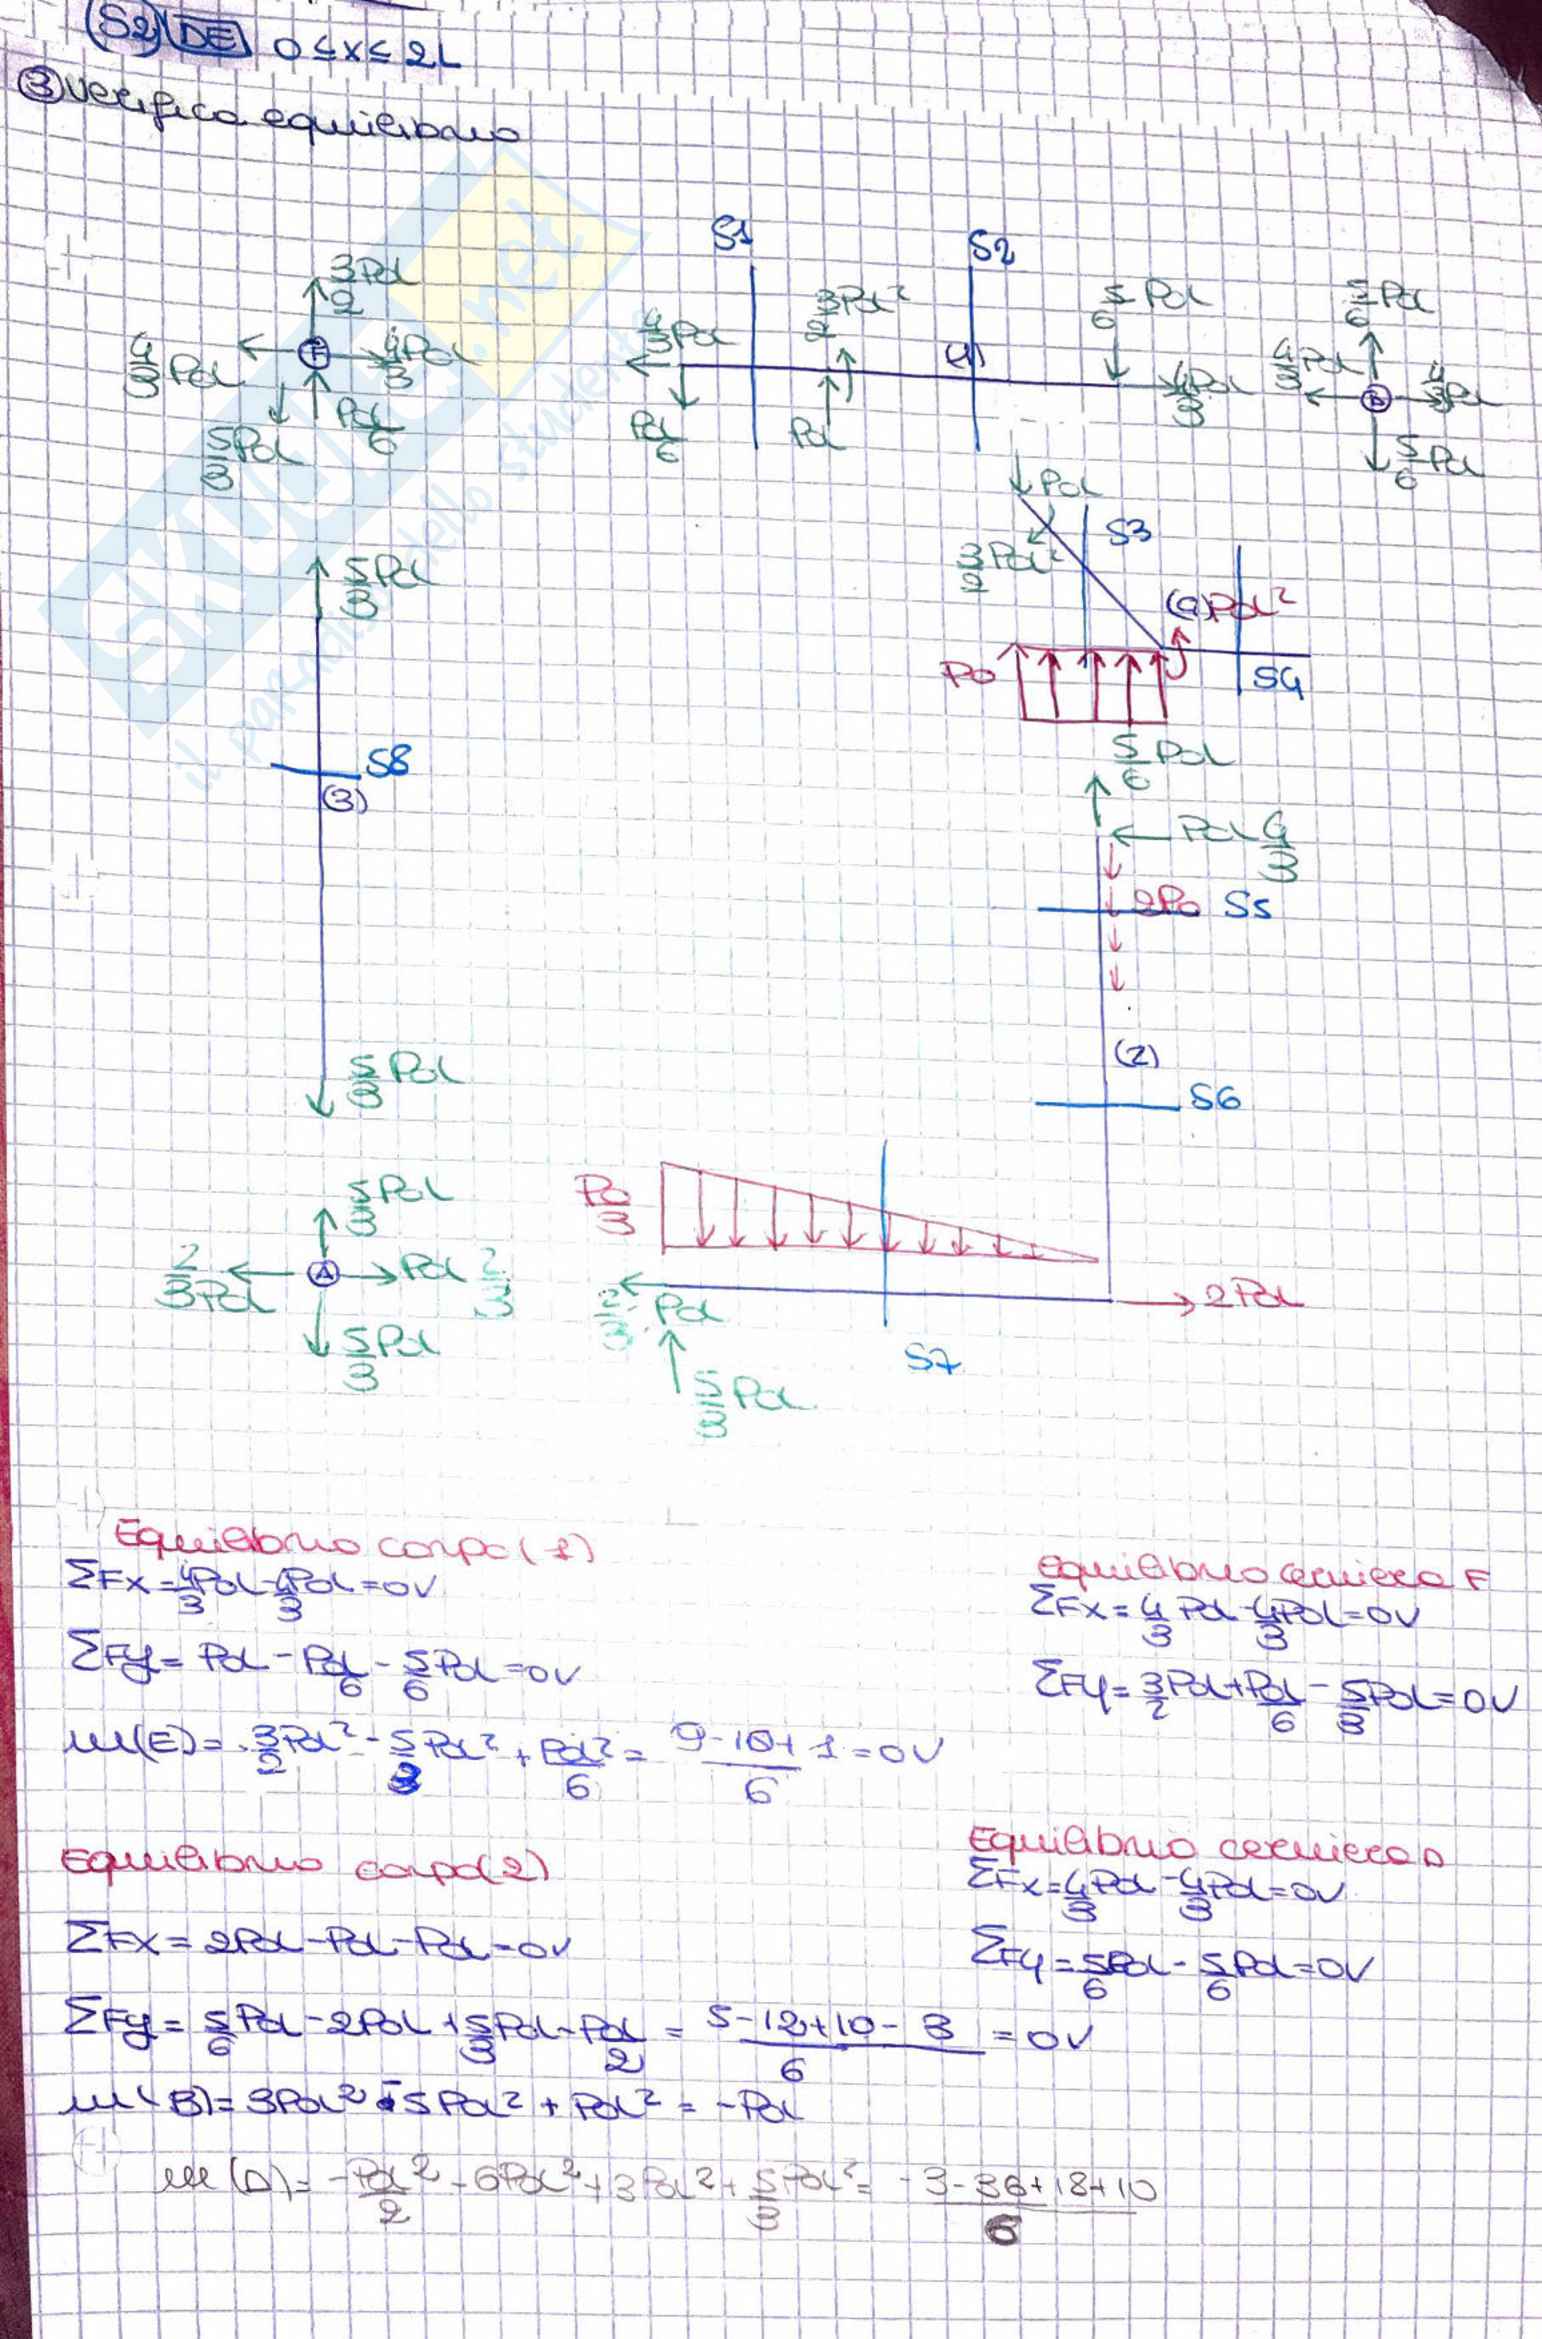 (S2) DE 0≤x≤2L
③ Verifica equilibrio
S1
S2
3/2 PoL
4/3 PoL
F
4/3 PoL
5/3 PoL
PoL/6
4/3 PoL
PoL/6
3/2 PoL²
PoL
(1)
5/6 PoL
4/3 PoL
5/6 PoL
4/3 PoL
D
4/3 PoL
5/6 PoL
PoL
3/2 PoL²
S3
(4) PoL²
Po
S4
5/3 PoL
S8
(3)
5/3 PoL
5/6 PoL
PoL 4/3
2Po S5
(2)
S6
5/3 PoL
2/3 PoL
A
PoL 2/3
5/3 PoL
Po/3
2/3 PoL
2PoL
S7
5/3 PoL
Equilibrio corpo (1)
ΣFx = 4/3 PoL - 4/3 PoL = 0 ✓
ΣFy = PoL - PoL/6 - 5/6 PoL = 0 ✓
m(E) = 3/2 PoL² - 5/3 PoL² + PoL²/6 = (9-10+1)/6 = 0 ✓
Equilibrio cerniera F
ΣFx = 4/3 PoL - 4/3 PoL = 0 ✓
ΣFy = 3/2 PoL + PoL/6 - 5/3 PoL = 0 ✓
Equilibrio corpo (2)
ΣFx = 2PoL - PoL - PoL = 0 ✓
ΣFy = 5/6 PoL - 2PoL + 5/3 PoL - PoL/2 = (5-12+10-3)/6 = 0 ✓
m(B) = 3PoL² - 5PoL² + PoL² = -PoL
Equilibrio cerniera D
ΣFx = 4/3 PoL - 4/3 PoL = 0 ✓
ΣFy = 5/6 PoL - 5/6 PoL = 0 ✓
m(D) = -PoL²/2 - 6PoL² + 3PoL² + 5/3 PoL² = (-3-36+18+10)/6
SKUOLA.net
il paradiso dello studente